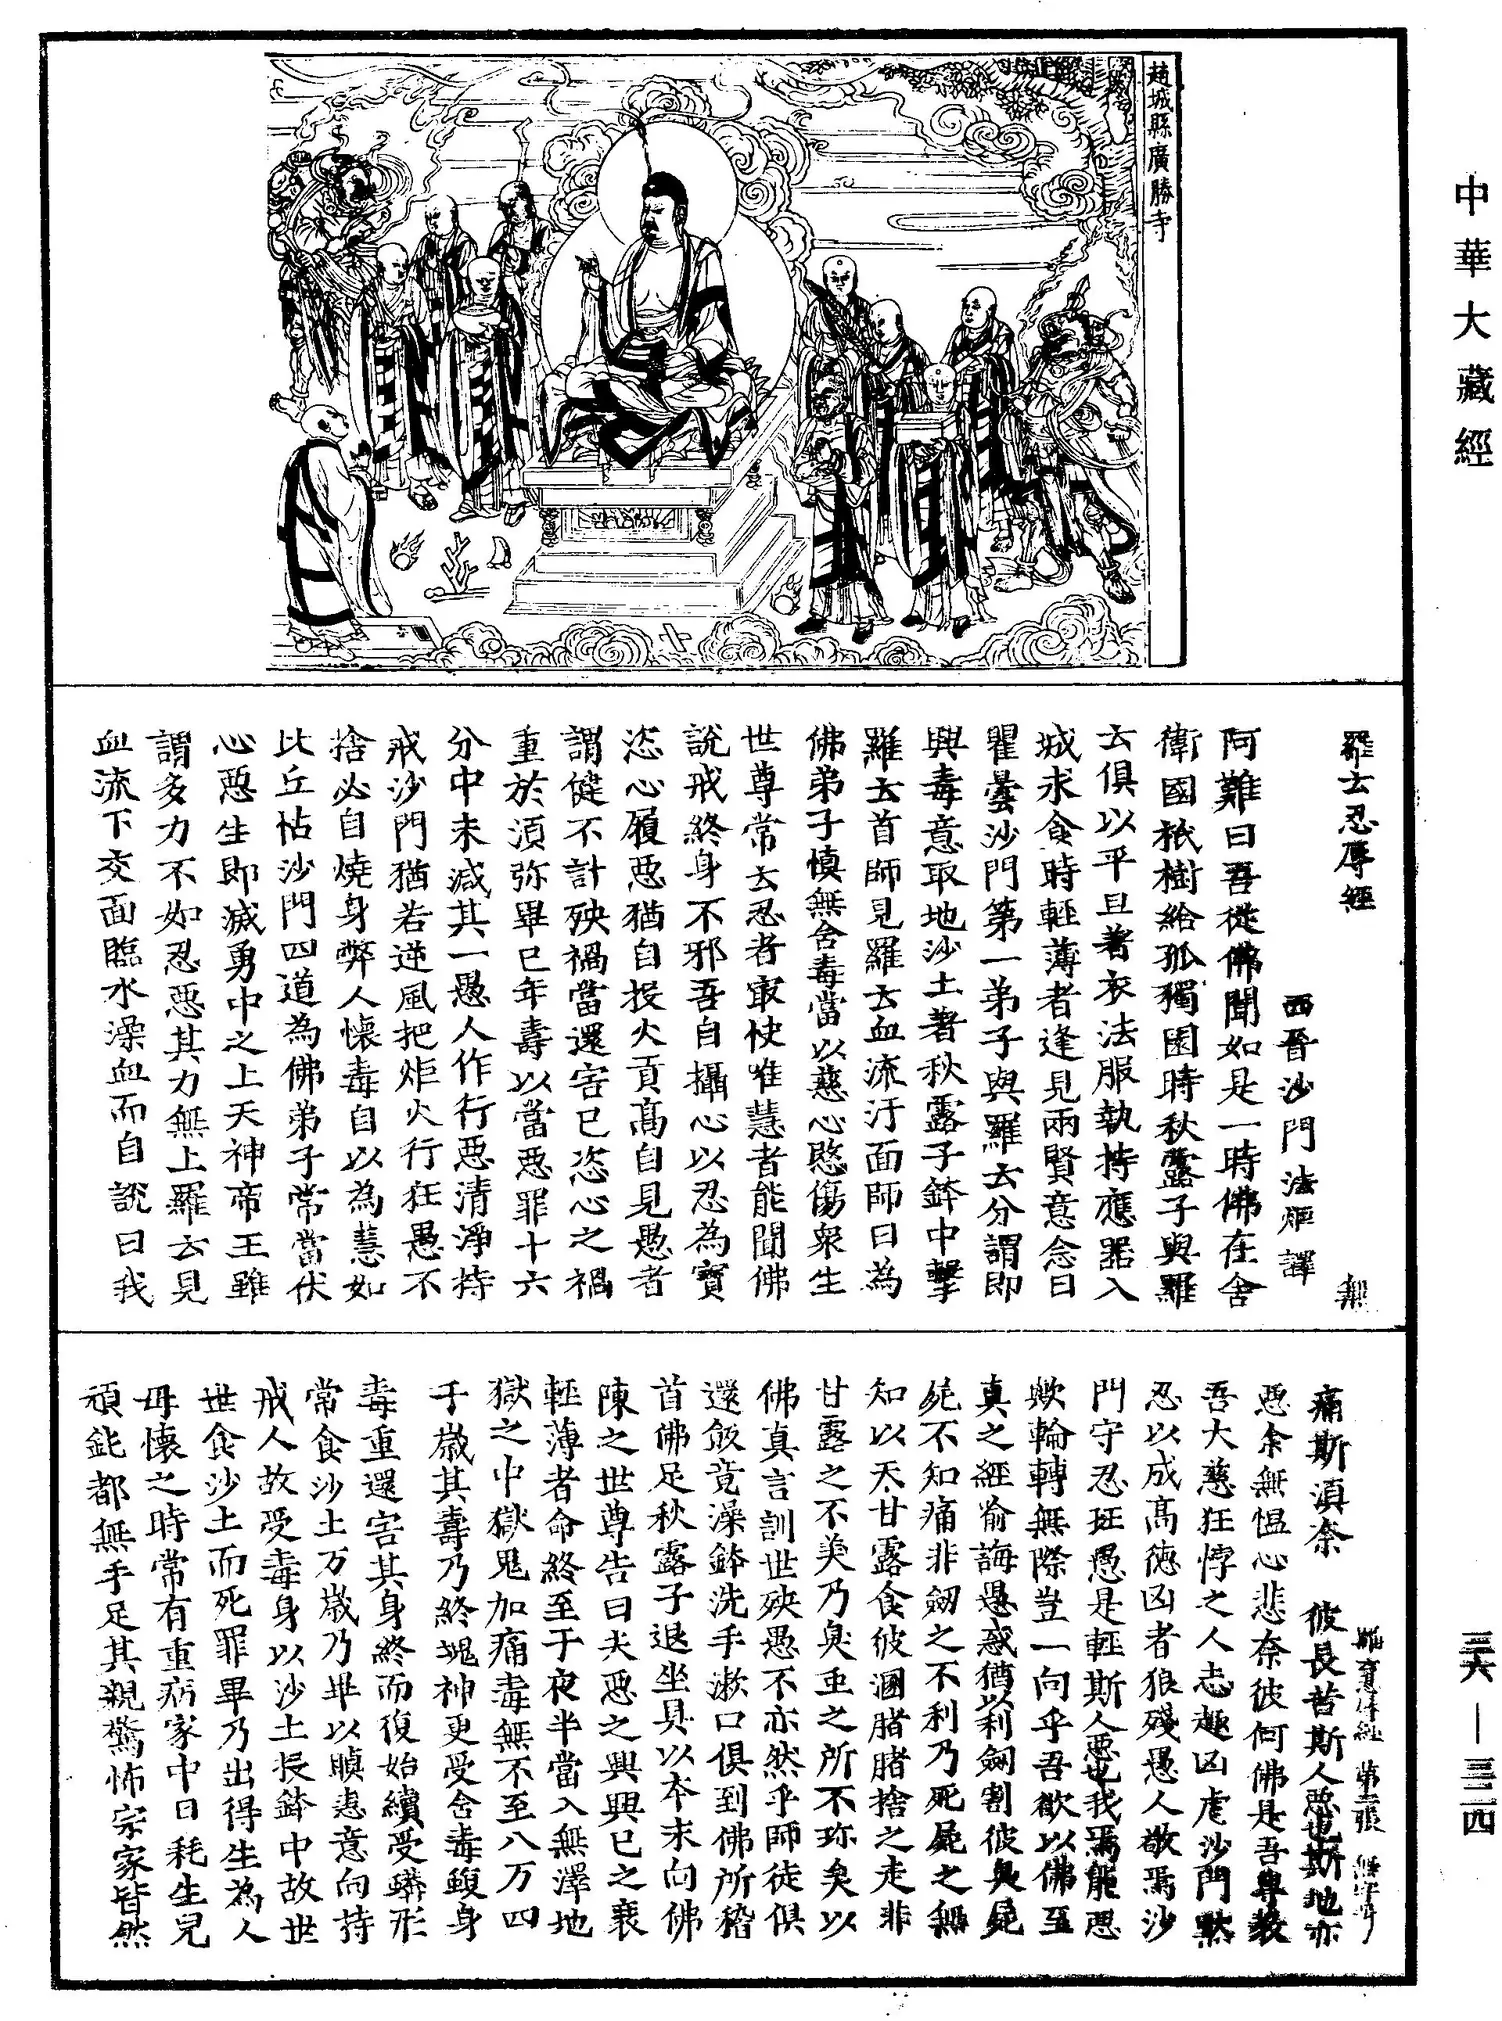 中華大藏經
趙城縣廣勝寺
羅云忍辱經
無
西晉沙門法炬譯
阿難曰吾從佛聞如是一時佛在舍
衛國祇樹給孤獨園時秋露子與羅
云俱以平旦著衣法服執持應器入
城求食時輕薄者逢見兩賢意念曰
瞿曇沙門第一弟子與羅云分謂即
興毒意取地沙土著秋露子鉢中擊
羅云首師見羅云血流汙面師曰為
佛弟子慎無含毒當以慈心愍傷衆生
世尊常云忍者最快唯慧者能聞佛
說戒終身不邪吾自攝心以忍為寶
恣心履惡猶自投火貢高自見愚者
謂健不計殃禍當還害己恣心之禍
重於須弥畢已年壽以當惡罪十六
分中未減其一愚人作行惡清淨持
戒沙門猶若逆風把炬火行狂愚不
捨必自燒身弊人懷毒自以為慧如
比丘怙沙門四道為佛弟子常當伏
心惡生即滅勇中之上天神帝王雖
謂多力不如忍惡其力無上羅云見
血流下交面臨水澡血而自說曰我
痛斯湏奈彼長苦斯人惡也斯地亦
惡余無慍心悲奈彼何佛是吾尊教
吾大慈狂悖之人志趣凶虐沙門黙
忍以成高德凶者狼殘愚人敬焉沙
門守忍狂愚是輕斯人惡也我焉能忍
欺輪轉無際豈一向乎吾欲以佛至
真之經喻誨愚惑猶以利劒割彼臭屍
屍不知痛非劒之不利乃死屍之無
知以天甘露食彼溷猪猪捨之走非
甘露之不美乃臭虫之所不珎矣以
佛真言訓世殃愚不亦然乎師徒俱
還飯竟澡鉢洗手漱口俱到佛所稽
首佛足秋露子退坐具以本末向佛
陳之世尊告曰夫惡之興興已之衰
輕薄者命終至于夜半當入無澤地
獄之中獄鬼加痛毒無不至八万四
千歲其壽乃終䰟神更受含毒蝮身
毒重還害其身終而復始續受蟒形
常食沙土万歲乃畢以瞋恚意向持
戒人故受毒身以沙土投鉢中故世
世食沙土而死罪畢乃出得生為人
母懷之時常有重病家中日耗生兒
頑鈍都無手足其親驚怖宗家皆然
三六—三二四